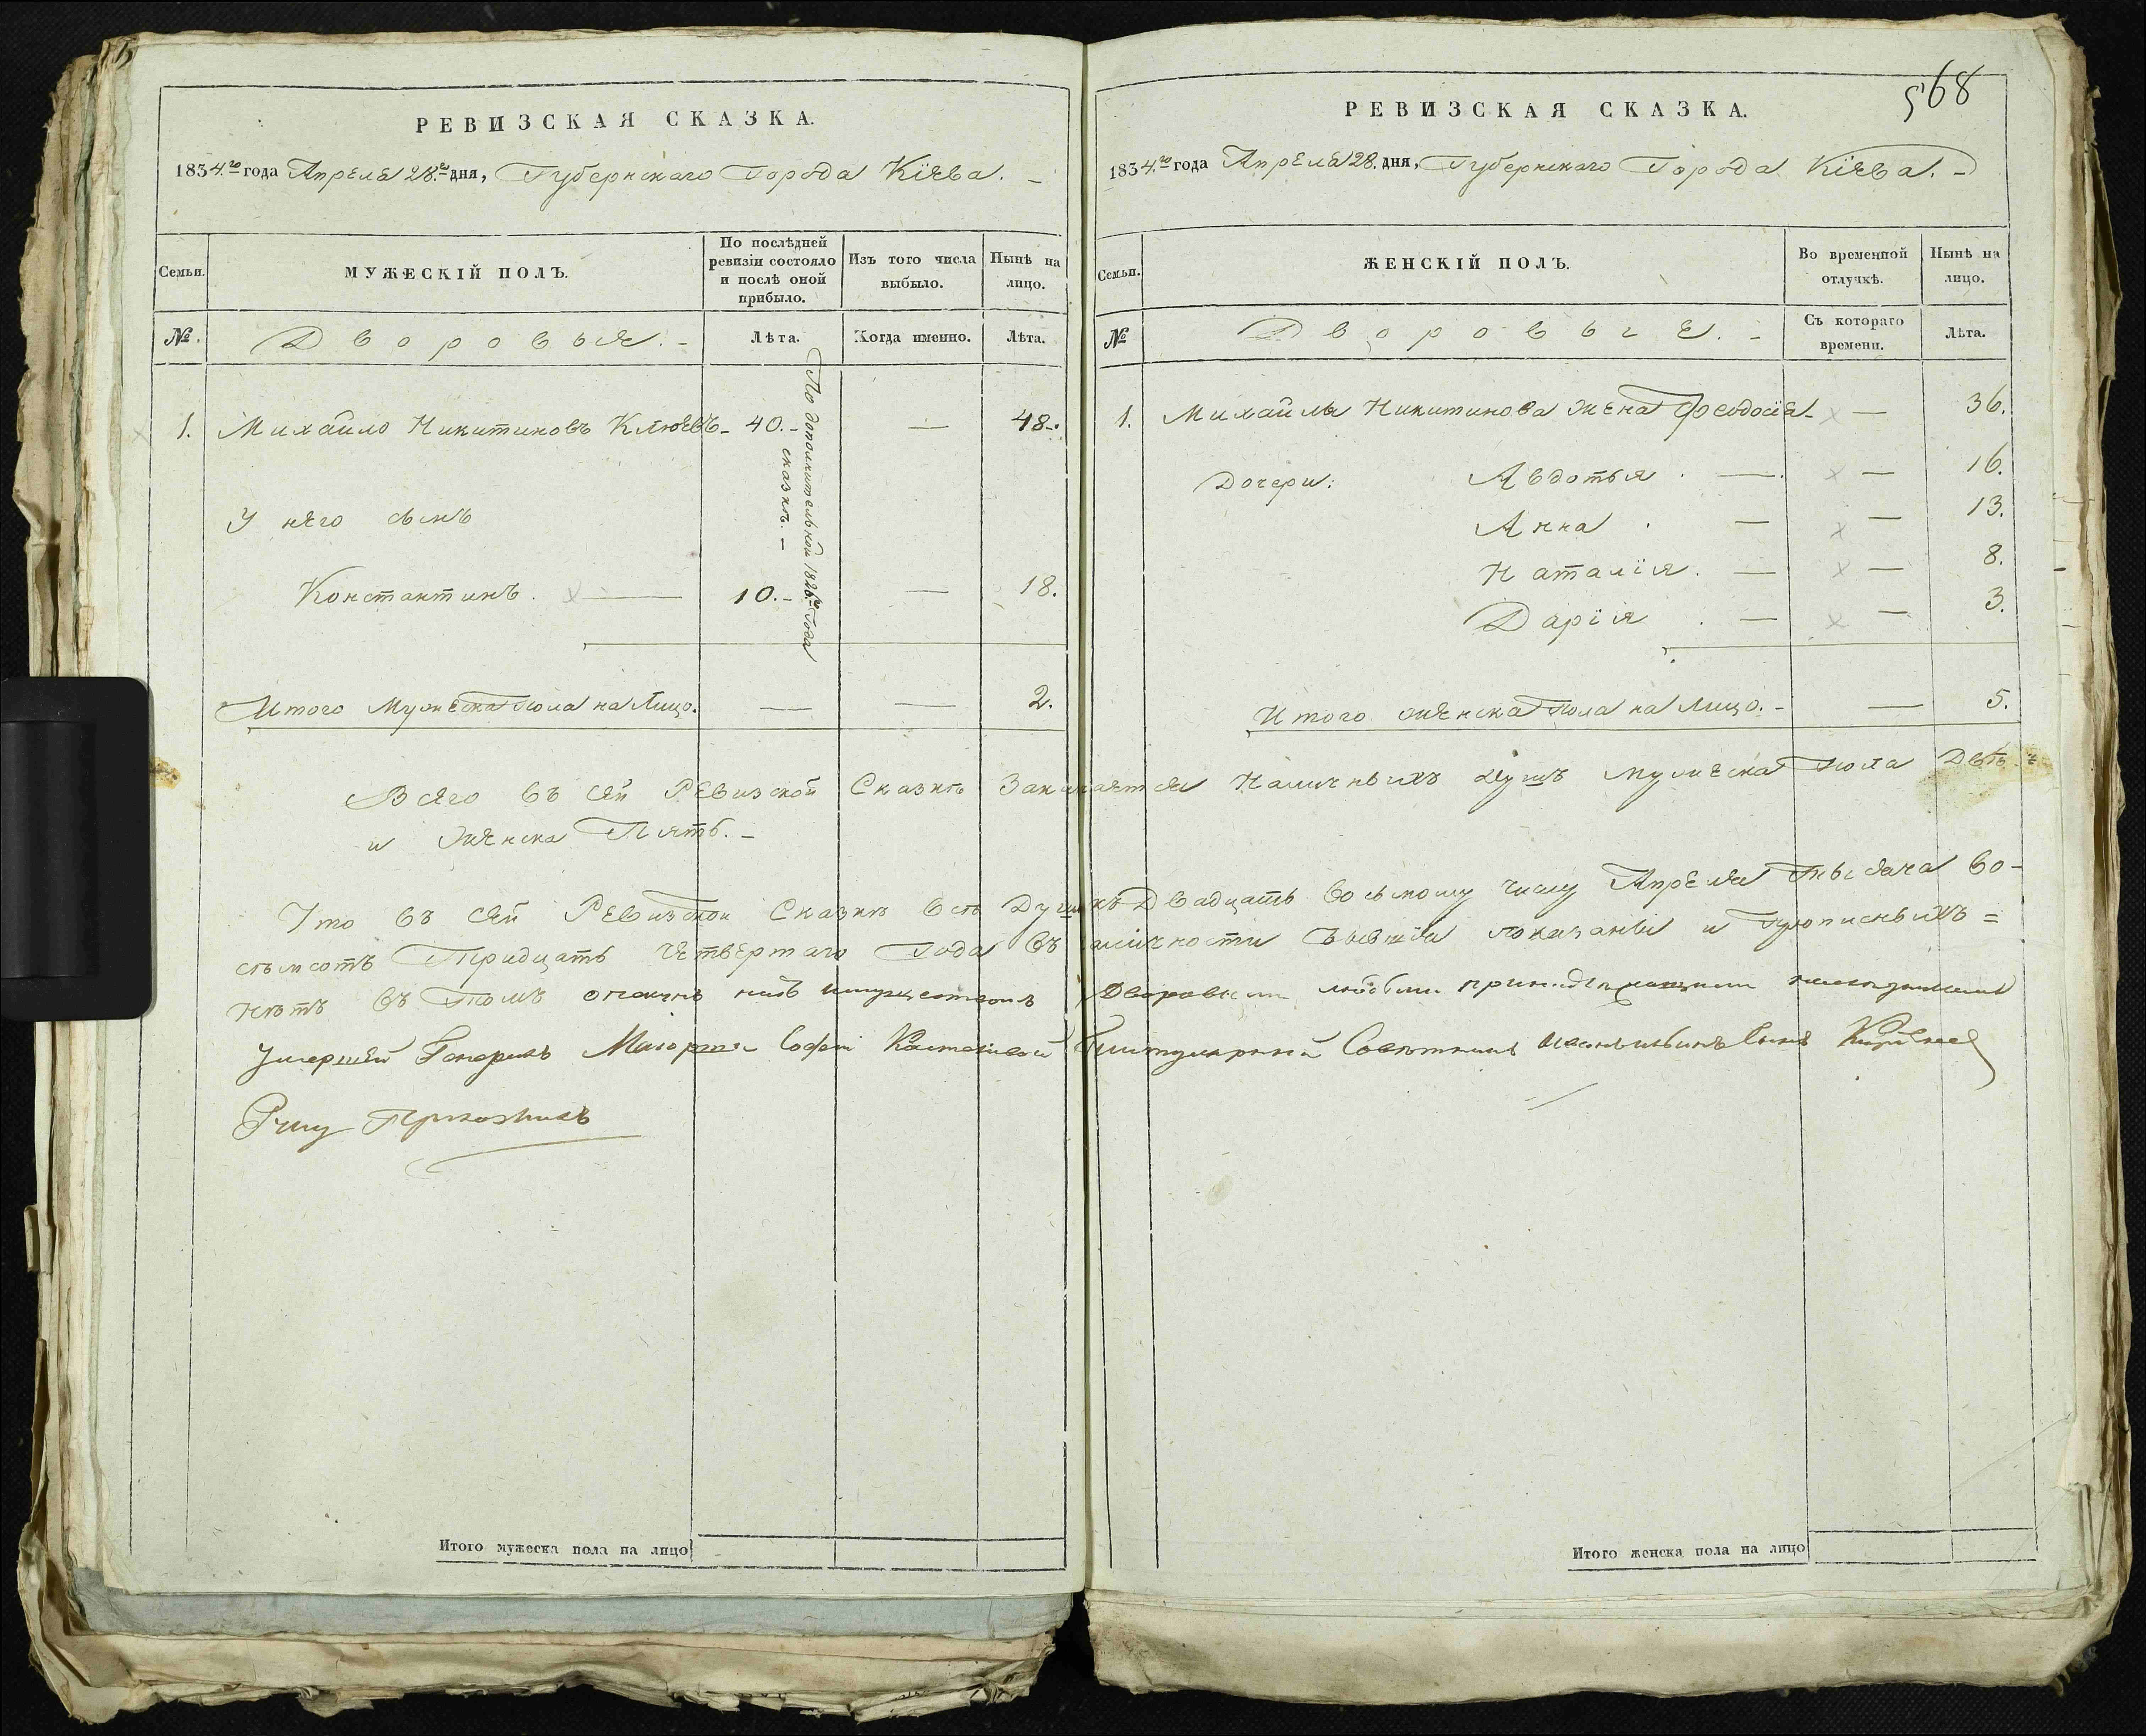 РЕВИЗСКАЯ СКАЗКА.
1834.го года Апреля 28.го дня, Губернскаго Города Кіева. –
Семьи.
МУЖЕСКІЙ ПОЛЪ.
По послѣдней ревизіи состояло и послѣ оной прибыло.
Изъ того числа выбыло.
Нынѣ на лицо.
№.
Дворовыя. –
Лѣта.
Когда именно.
Лѣта.
По дополнительной 1826.го Года сказкѣ. –
1. Михайло Никитиновъ Клюевъ – 40. – — 48.
У него сынъ
Константинъ. — 10. – — 18.
Итого Мужеска Пола на Лицо. — — 2.
568
РЕВИЗСКАЯ СКАЗКА.
1834.го года Апреля 28. дня, Губернскаго Города Кіева. –
Семьи.
ЖЕНСКІЙ ПОЛЪ.
Во временной отлучкѣ.
Нынѣ на лицо.
№
Дворовыя. –
Съ котораго времени.
Лѣта.
1. Михайлы Никитинова жена Феодосія – — 36.
Дочери: Авдотья . — — 16.
Анна . — — 13.
Наталія . — — 8.
Дарія . — — 3.
Итого женска Пола на Лицо. – — 5.
Всего въ сей Ревизской Сказкѣ Заключается Наличныхъ душъ мужеска пола Двѣ
и женска Пять. –
Что въ сей Ревизской Сказкѣ всѣ Души къ Двадцать восьмому числу Апреля тысяча во-
съмсотъ Тридцать Четвертаго Года въ наличности бывшія показаны и прописныхъ =
нѣтъ въ томъ имуществомъ Дворовыми принадлежащими
Умершей Генералъ Маіорши Софьи Титулярный Совѣтникъ Сынъ
Руку Приложилъ
Итого мужеска пола на лицо
Итого женска пола на лицо